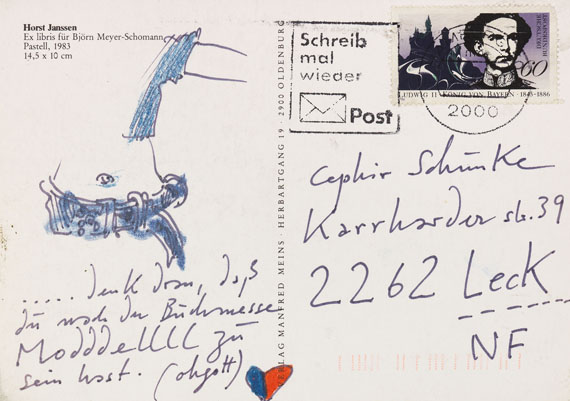 Horst Janssen
Ex libris für Björn Meyer-Schomann
Pastell, 1983
14,5 x 10 cm
..... denk dran, daß
du nach der Buchmesse
Modddellll zu
sein hast. (ohgott)
VERLAG MANFRED MEINS · HERBARTGANG 19 · 2900 OLDENBURG
Schreib
mal
wieder
Post
2000
DEUTSCHE BUNDESPOST
60
LUDWIG II · KÖNIG VON BAYERN · 1845-1886
Schünke
Karrharder str. 39
2262 Leck
NF